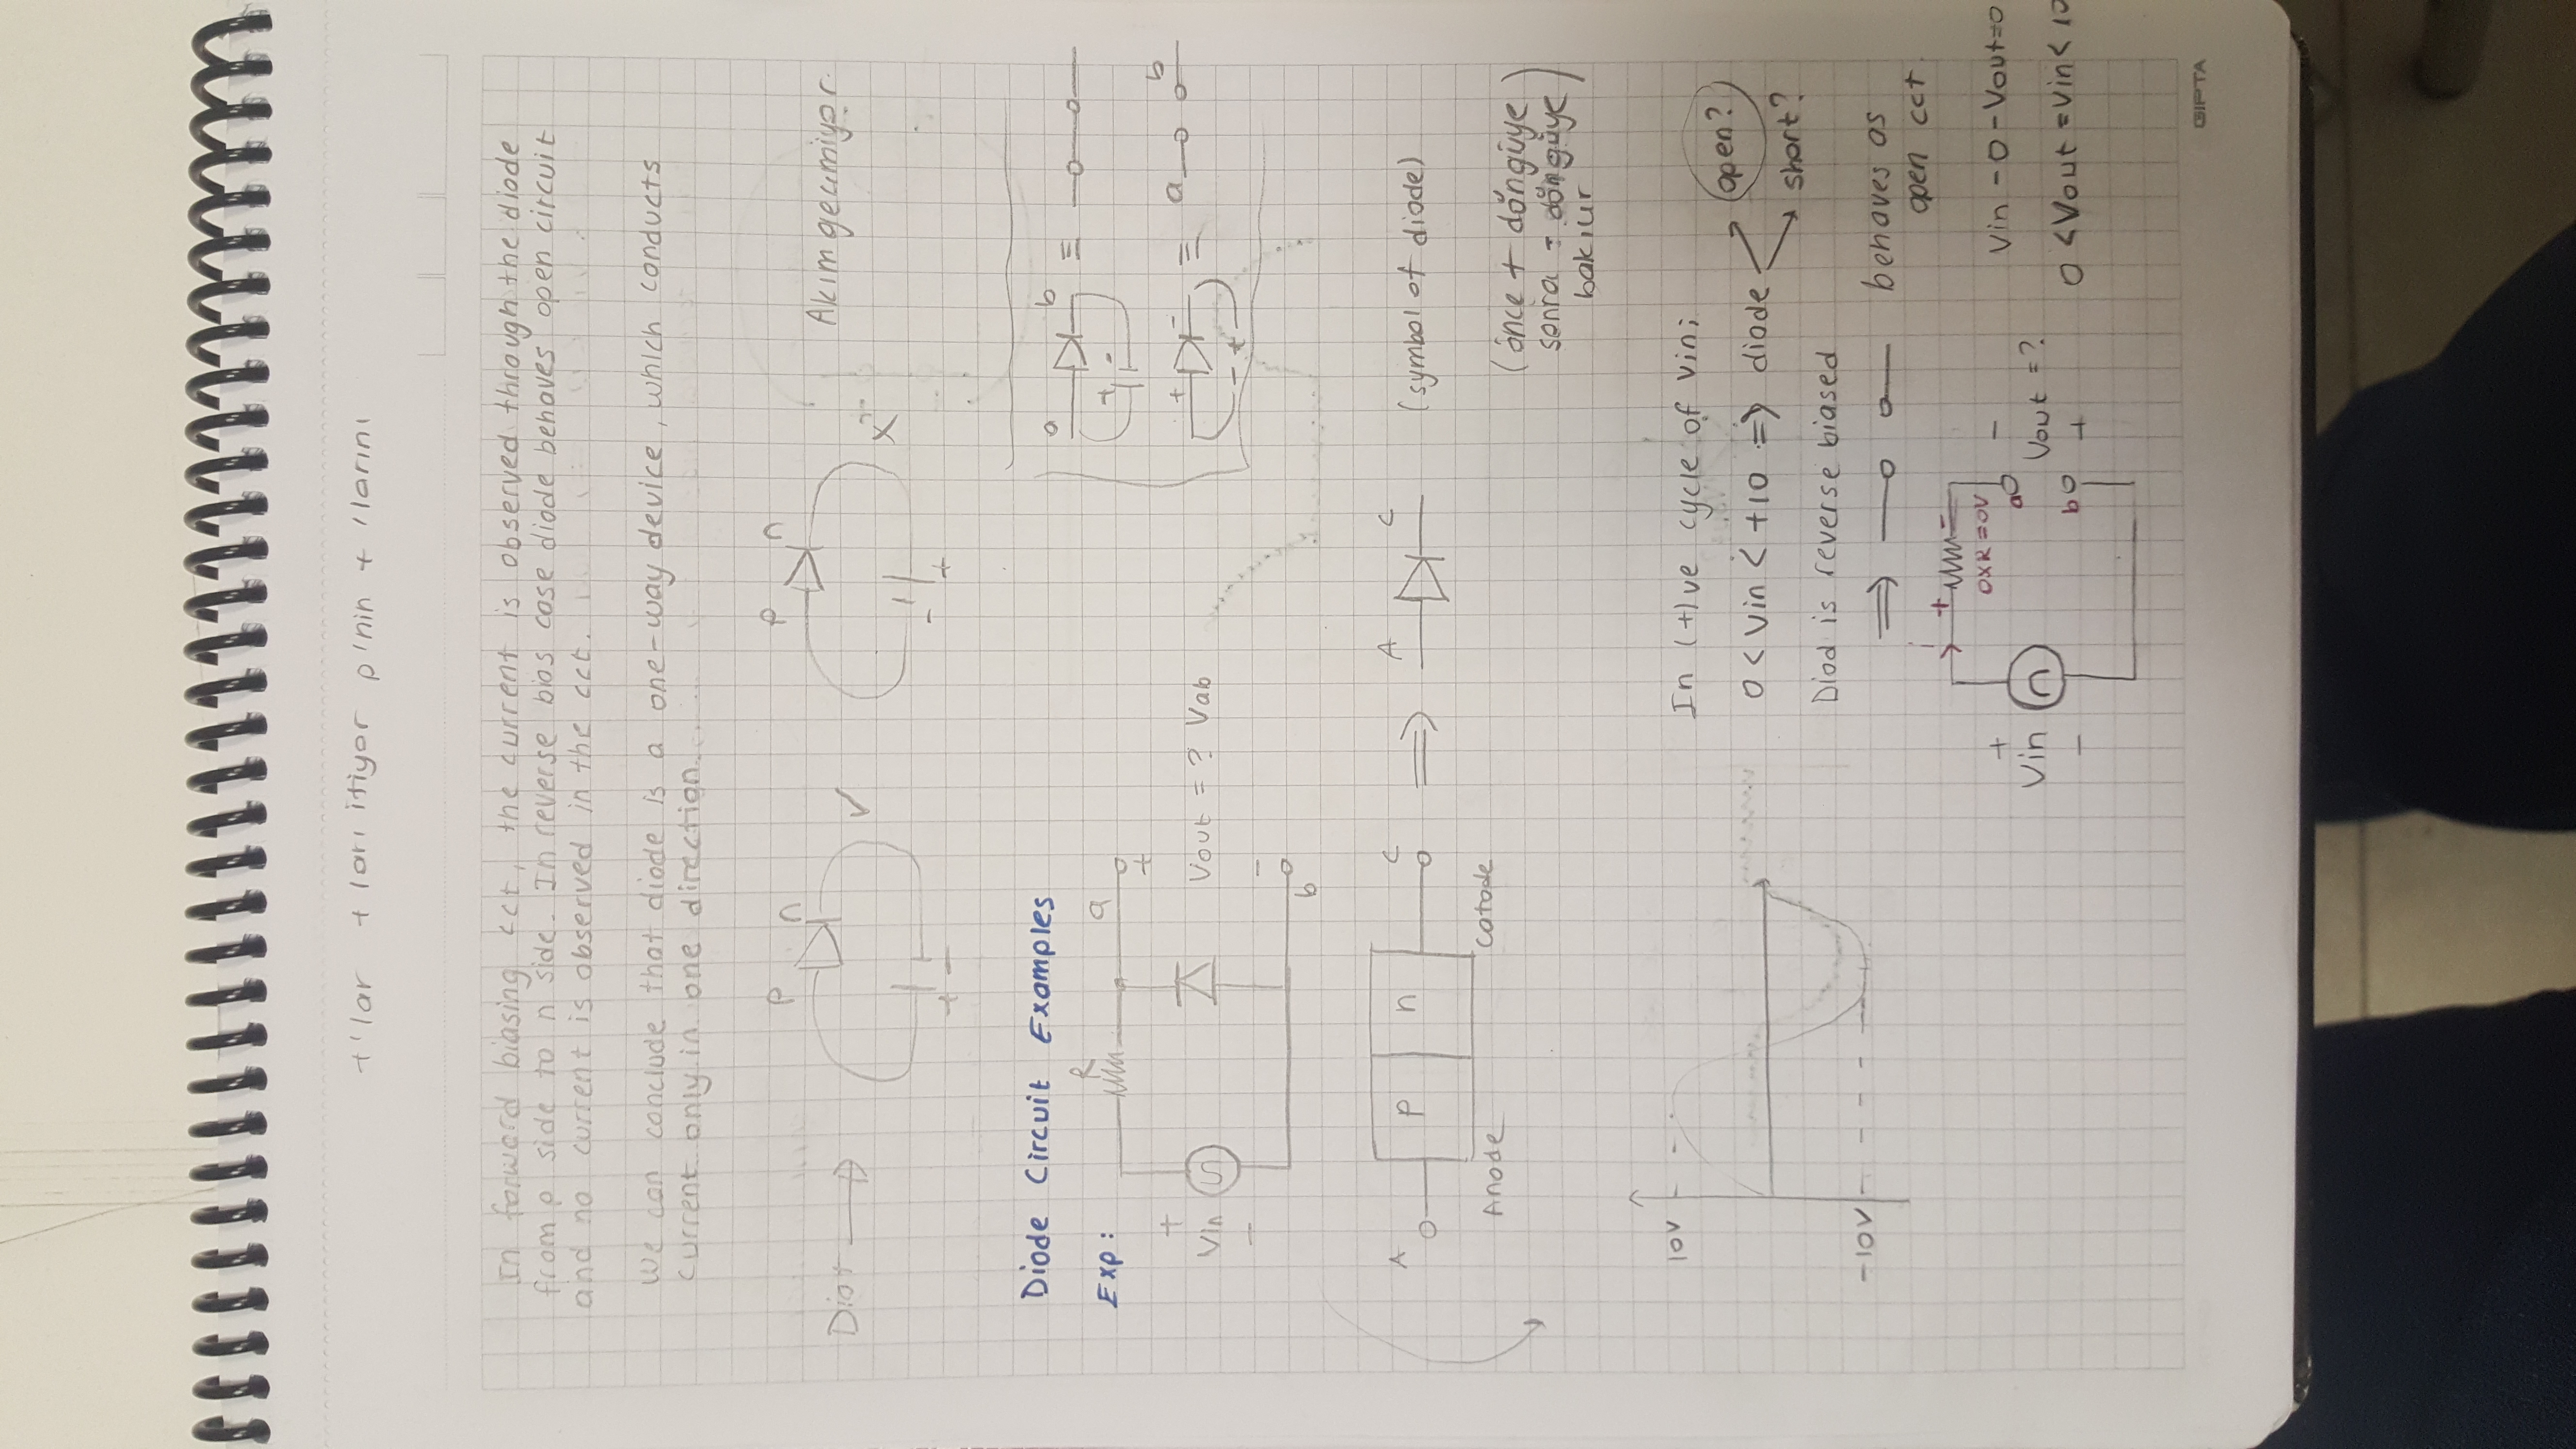 +'lar + ları itiyor p'nin + 'larını
In forward biasing cct, the current is observed through the diode
from p side to n side. In reverse bias case diode behaves open circuit
and no current is observed in the cct.
We can conclude that diode is a one-way device, which conducts
current only in one direction.
p n
p n
Diot
✓
x
Akım geçmiyor.
+ -
- +
Diode Circuit Examples
Exp:
R
a
+
+
Vin
-
Vout = ? Vab
-
b
a b
≡
+ -
+ -
≡
a b
- +
A
p
n
C
⇒
A C
(symbol of diode)
Anode
Catode
(önce + döngüye
sonra - döngüye
bakılır)
10V
-10V
In (+)ve cycle of Vin;
0 < Vin < +10 ⇒ diode
open?
short?
Diod is reverse biased
⇒ behaves as
open cct
i
+ -
0xR=0V
+
Vin
-
a
-
Vout = ?
b
+
Vin - 0 - Vout=0
0 < Vout = Vin < 10
GIPTA